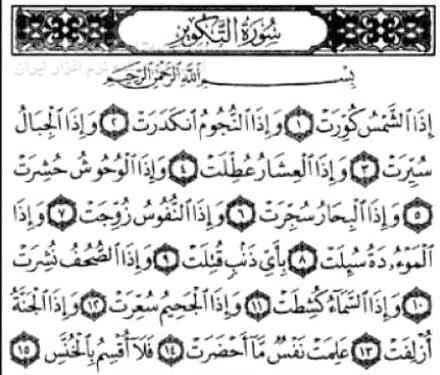 سُورَةُ التَّكْوِيرِ
نرم افزار ایران
بِسْمِ ٱللَّهِ ٱلرَّحْمَٰنِ ٱلرَّحِيمِ
إِذَا ٱلشَّمْسُ كُوِّرَتْ ١ وَإِذَا ٱلنُّجُومُ ٱنكَدَرَتْ ٢ وَإِذَا ٱلْجِبَالُ
سُيِّرَتْ ٣ وَإِذَا ٱلْعِشَارُ عُطِّلَتْ ٤ وَإِذَا ٱلْوُحُوشُ حُشِرَتْ
٥ وَإِذَا ٱلْبِحَارُ سُجِّرَتْ ٦ وَإِذَا ٱلنُّفُوسُ زُوِّجَتْ ٧ وَإِذَا
ٱلْمَوْءُۥدَةُ سُئِلَتْ ٨ بِأَيِّ ذَنۢبٍ قُتِلَتْ ٩ وَإِذَا ٱلصُّحُفُ نُشِرَتْ
١٠ وَإِذَا ٱلسَّمَآءُ كُشِطَتْ ١١ وَإِذَا ٱلْجَحِيمُ سُعِّرَتْ ١٢ وَإِذَا ٱلْجَنَّةُ
أُزْلِفَتْ ١٣ عَلِمَتْ نَفْسٌ مَّآ أَحْضَرَتْ ١٤ فَلَآ أُقْسِمُ بِٱلْخُنَّسِ ١٥